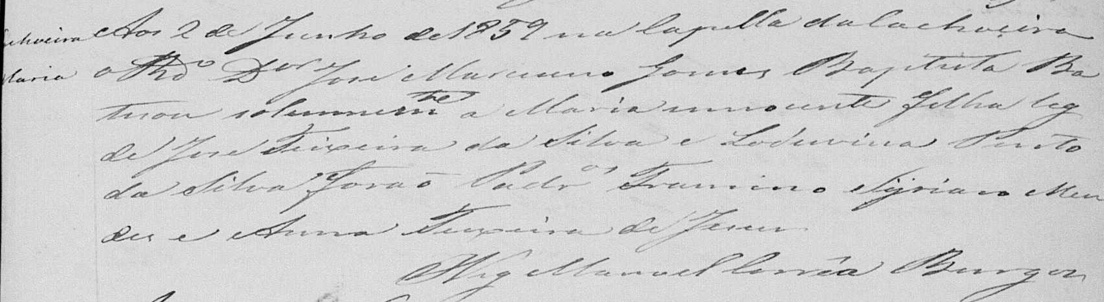 Cachoeira Aos 2 de Junho de 1859 na Capella da Cachoeira
Maria o Rdo Dor José Marciano Gomes Baptista Ba
tisou solemnemte a Maria innocente filha leg
de José Teixeira da Silva e Loduvina Pinto
da Silva forão Padros Cypriano Men
des e Anna Teixeira de Jesus
O Vig Manoel Corrêa Borges